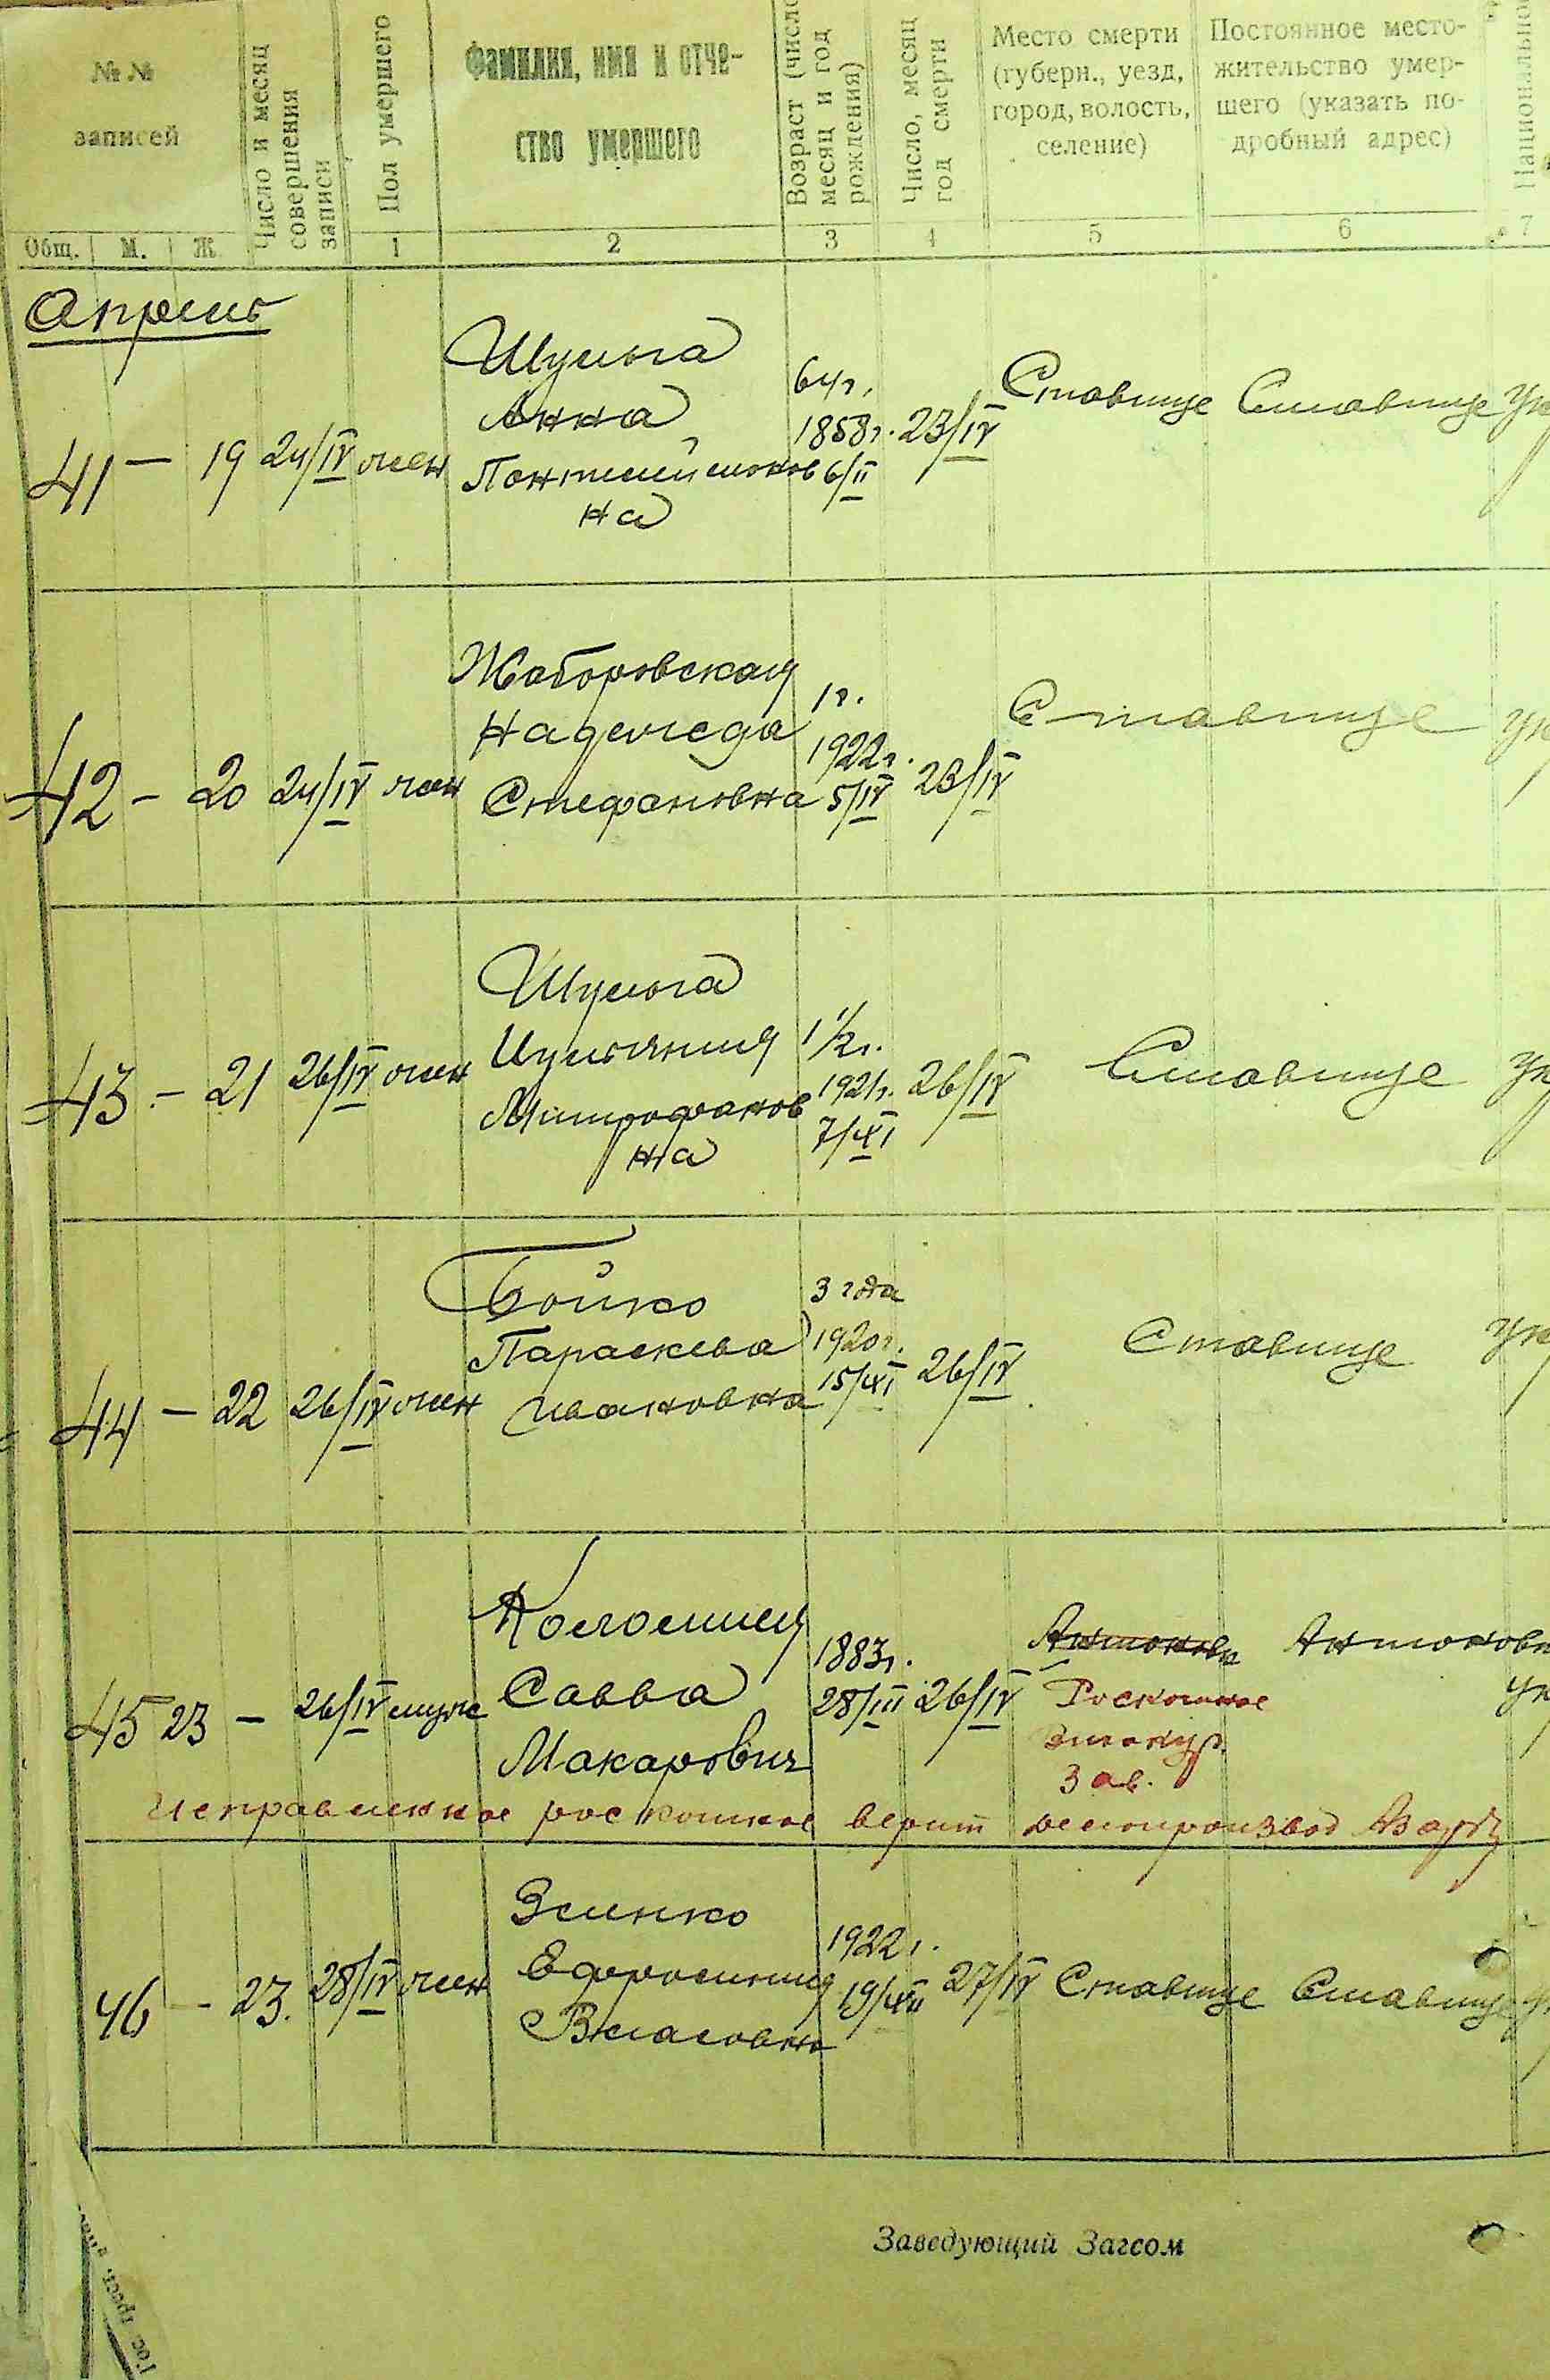 № №
записей
Число и месяц
совершения
записи
Пол умершего
Фамилия, имя и отче-
ство умершего
Возраст (число
месяц и год
рождения)
Число, месяц
год смерти
Место смерти
(губерн., уезд,
город, волость,
селение)
Постоянное место-
жительство умер-
шего (указать по-
дробный адрес)
Национально
Общ. М. Ж. 1 2 3 4 5 6 7
Апрель
Шульга
Анна
Пантилиймонов
на
41 — 19 24/IV жен
64 г.
1858 г.
6/II
23/IV
Ставище Ставище Ук
Жаборовская
Надежда
Стефановна
42 — 20 24/IV жен
1 г.
1922 г.
5/IV
23/IV
Ставище Ук
Шульга
Иулияния
Митрофанов
на
43 — 21 26/IV жен
1 1/2 г.
1921 г.
7/XI
26/IV
Ставище Ук
Бойко
Параскева
Ивановна
44 — 22 26/IV жен
3 года
1920 г.
15/XI
26/IV
Ставище Ук
Коломиец
Савва
Макарович
45 23 — 26/IV муж
1883 г.
28/III
26/IV
Антоновк
Роскошное
Зав.
Антоновк
Ук
Исправленное роскошное верит делопроизвод
Зелинко
Ефросиния
Власовна
46 — 23. 28/IV жен
1922 г.
19/XII
27/IV
Ставище Ставище
Заведующий Загсом